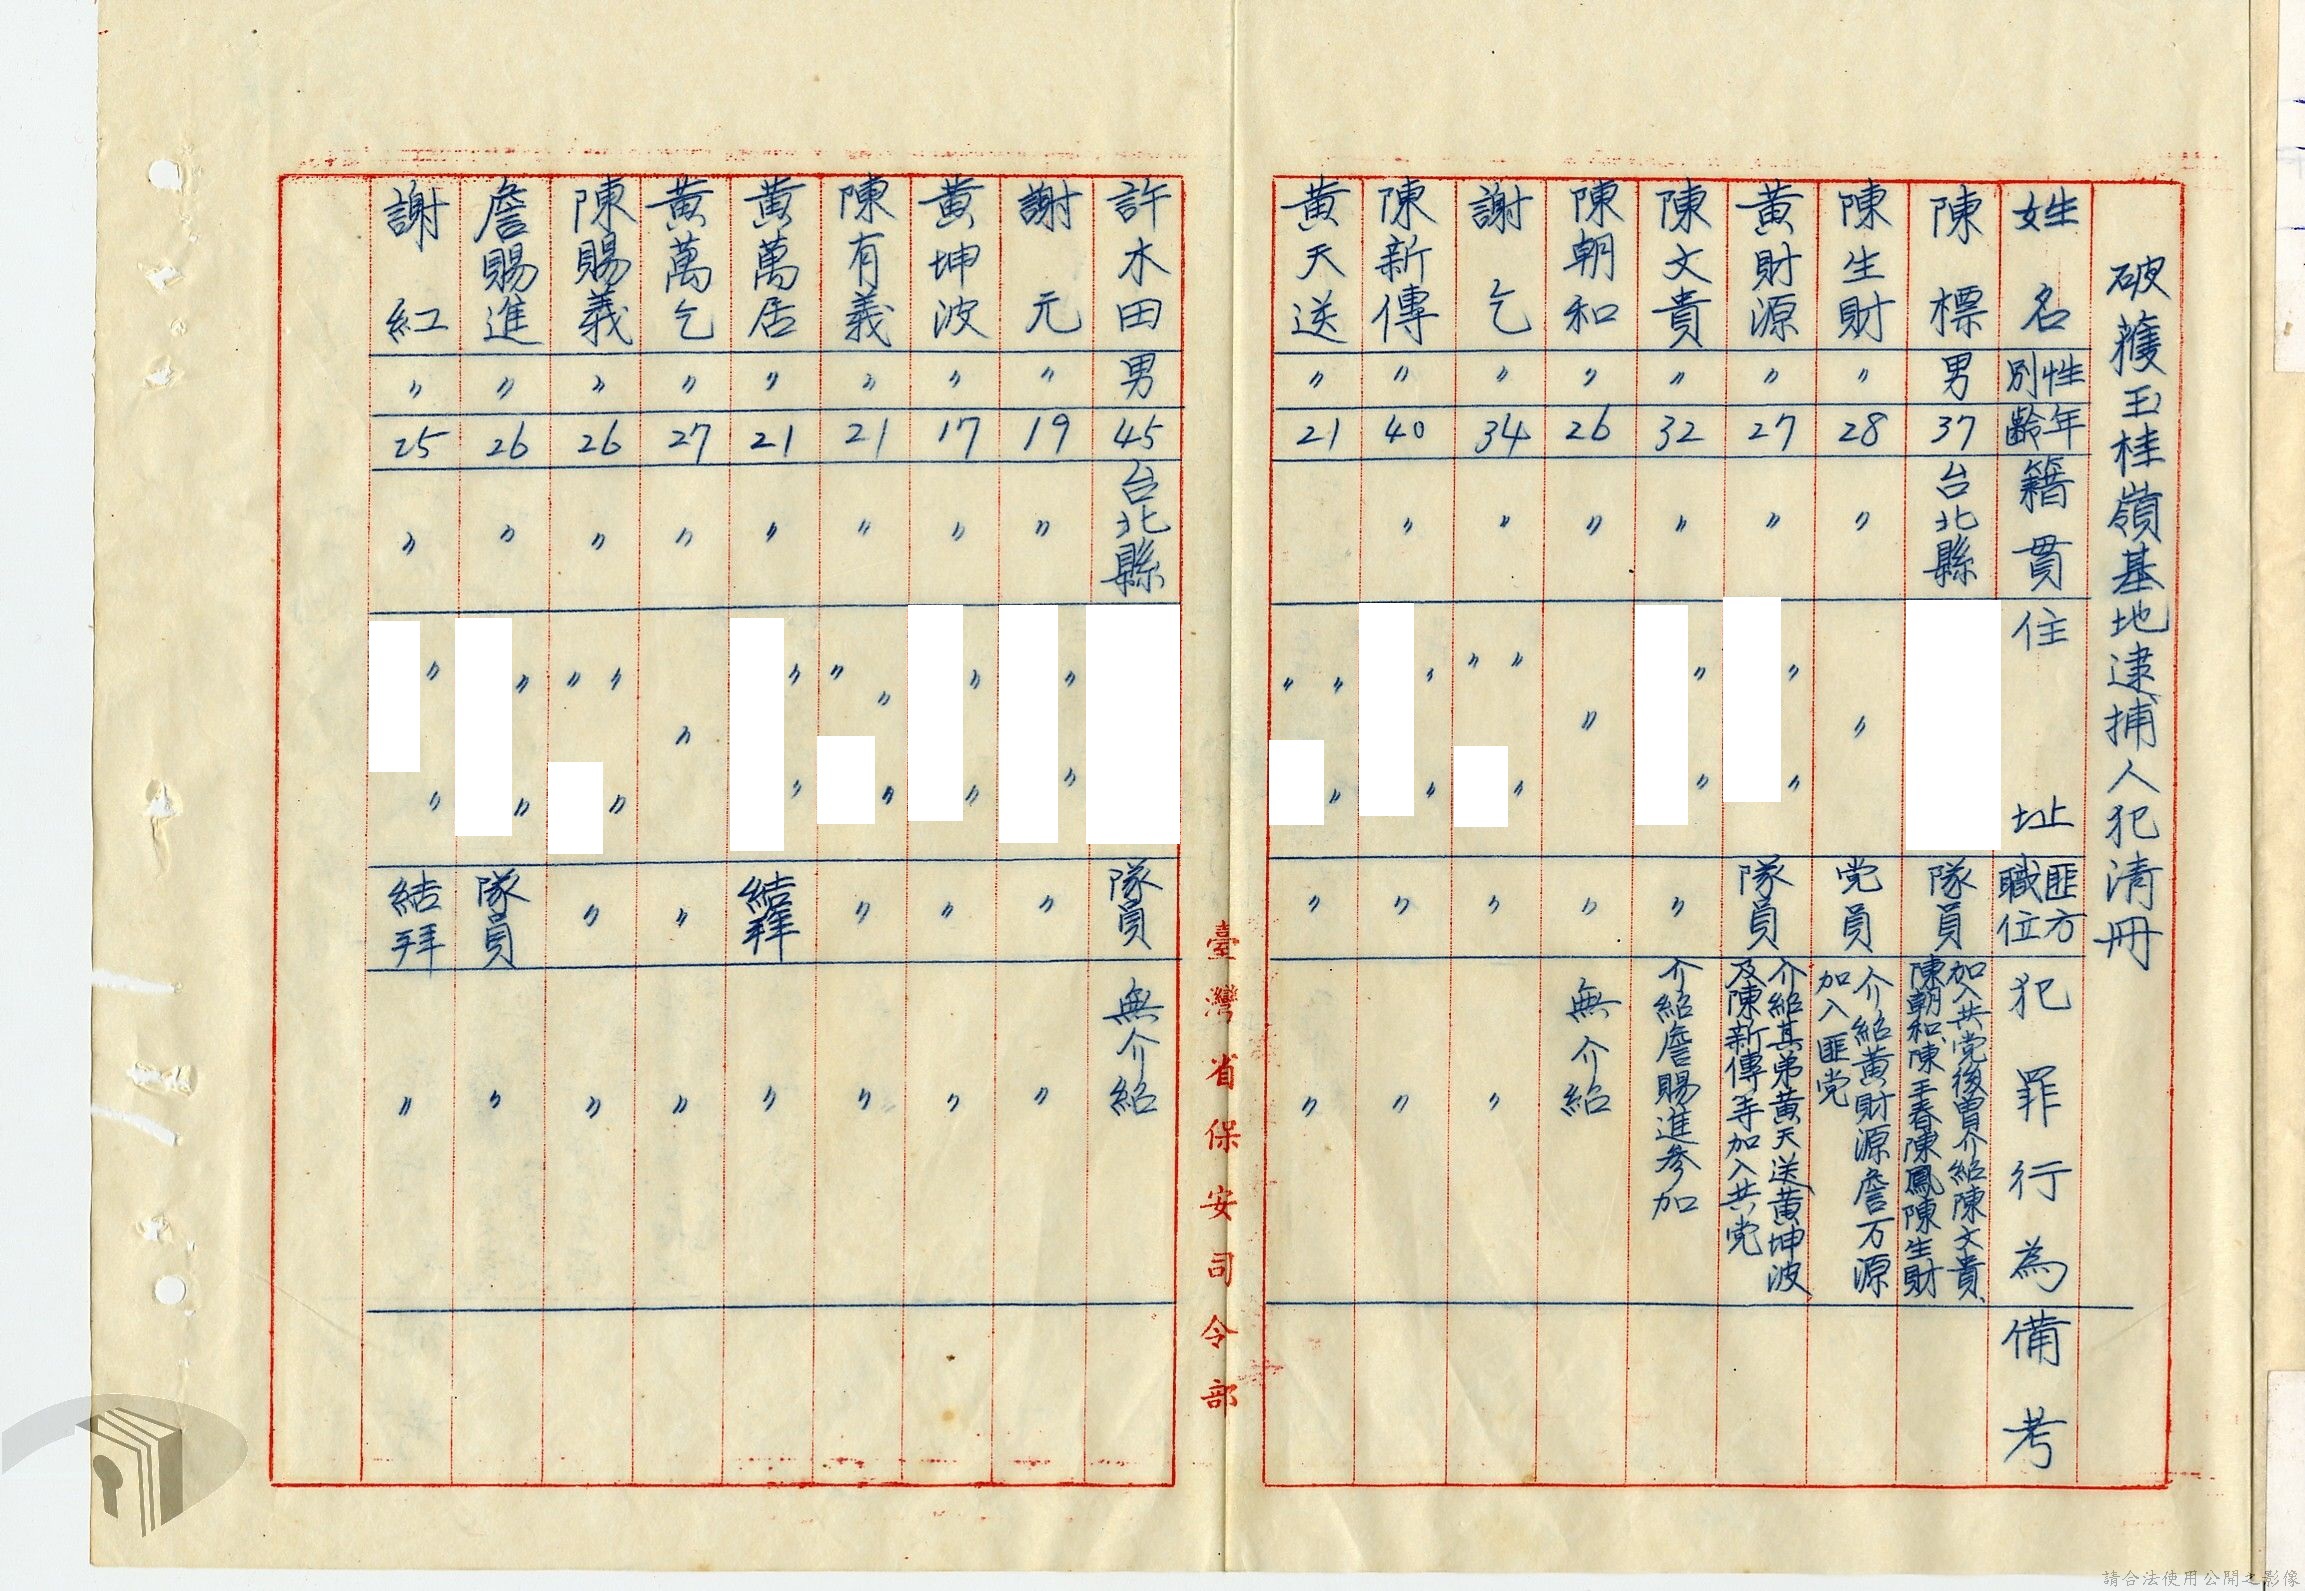 破獲玉桂嶺基地逮捕人犯清冊
姓名 性別 年齡 籍貫 住址 匪方職位 犯罪行為 備考
陳標 男 37 台北縣 隊員 加入共党後曾介紹陳文貴、陳朝和、陳王春陳鳳陳生財
陳生財 〃 28 〃 〃 党員 介紹黃財源詹万源加入匪党
黃財源 〃 27 〃 〃 〃 隊員 介紹其弟黃天送黃坤波及陳新傳等加入共党
陳文貴 〃 32 〃 〃 〃 〃 介紹詹賜進參加
陳朝和 〃 26 〃 〃 〃 無介紹
謝乞 〃 34 〃 〃 〃 〃 〃 〃
陳新傳 〃 40 〃 〃 〃 〃 〃
黃天送 〃 21 〃 〃 〃 〃 〃
臺灣省保安司令部
許水田 男 45 台北縣 隊員 無介紹
謝元 〃 19 〃 〃 〃 〃 〃
黃坤波 〃 17 〃 〃 〃 〃 〃
陳有義 〃 21 〃 〃 〃 〃 〃 〃
黃萬居 〃 21 〃 〃 〃 結拜 〃
黃萬乞 〃 27 〃 〃 〃 〃
陳賜義 〃 26 〃 〃 〃 〃 〃 〃
詹賜進 〃 26 〃 〃 〃 隊員 〃
謝紅 〃 25 〃 〃 〃 結拜 〃
請合法使用公開之影像